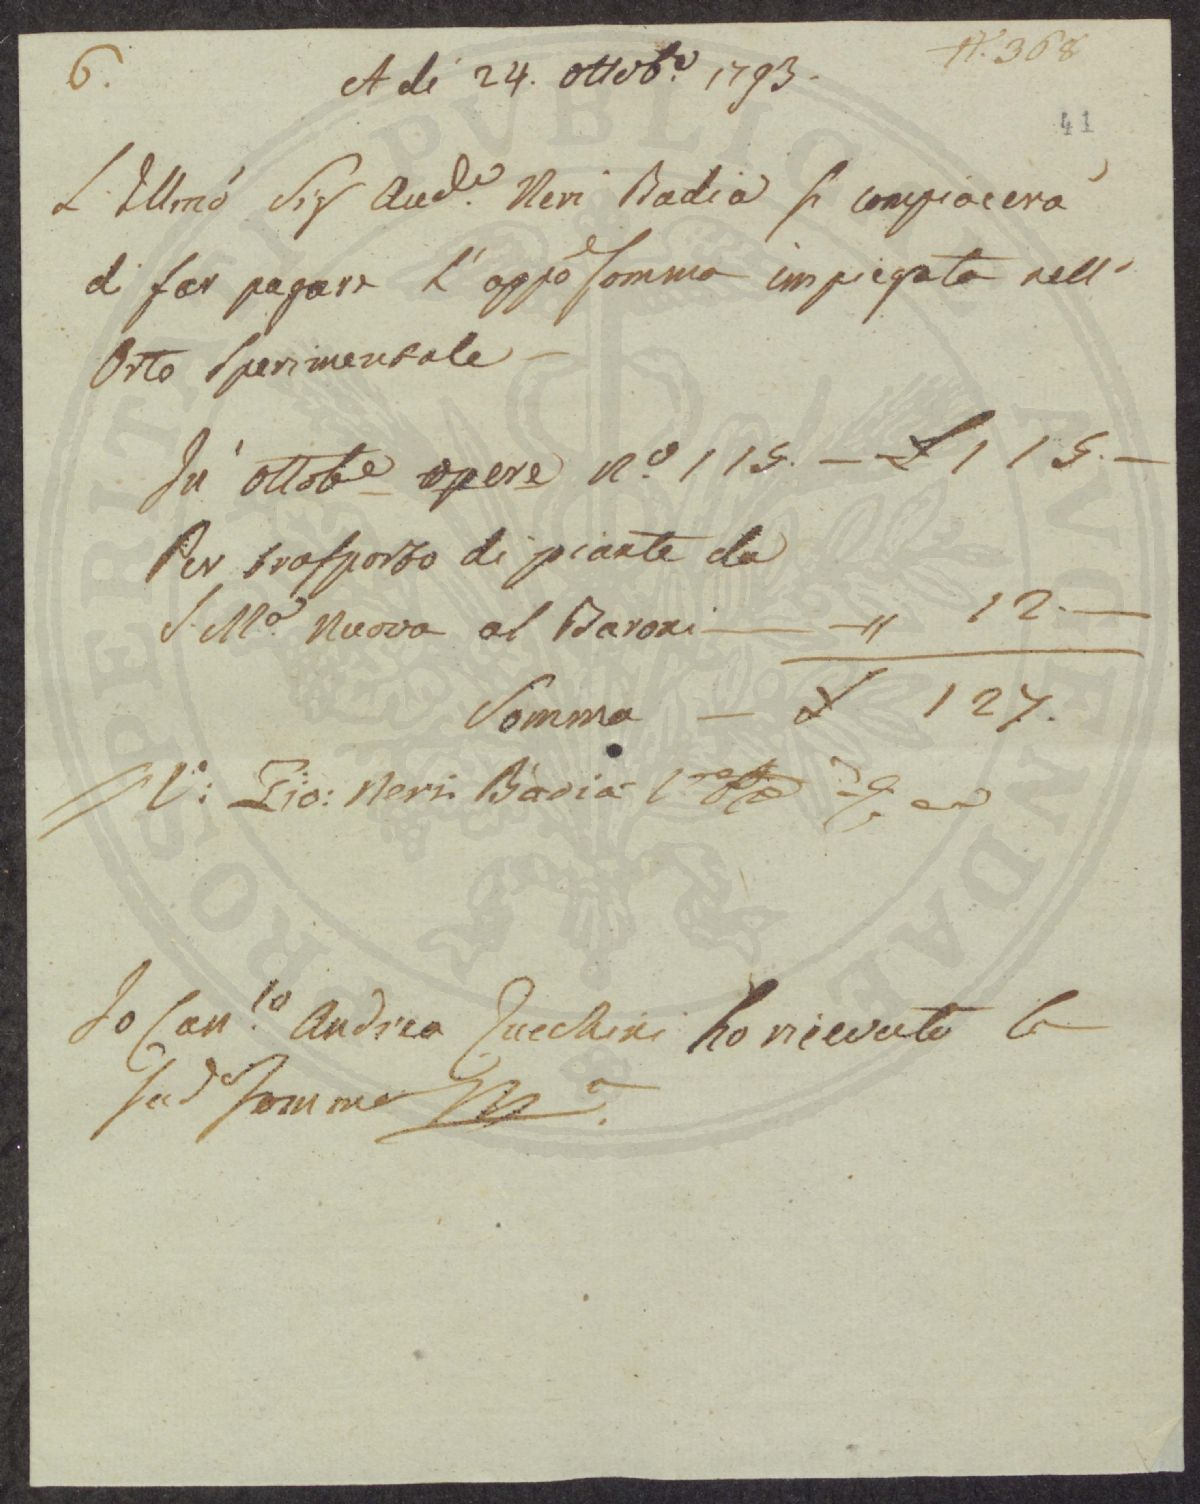 6.
N.° 368
A dì 24. Ottob.e 1793.
41
L'Illmo Sig Aud.e Neri Badia si compiacerà
di far pagare L'appa Somma impiegata nell'
Orto Sperimentale —
In Ottobe opere N.° 115. — £ 115. —
Per trasporto di piante da
S. Ma. Nuova al Baroni — — " 12. —
Somma — £ 127.
V.: Gio: Neri Badia
Io Can.co Andrea Zucchini ho ricevuto la
sud.a Somma Mo. pa.
PROSPERITATI PVBLICAE AVGENDAE